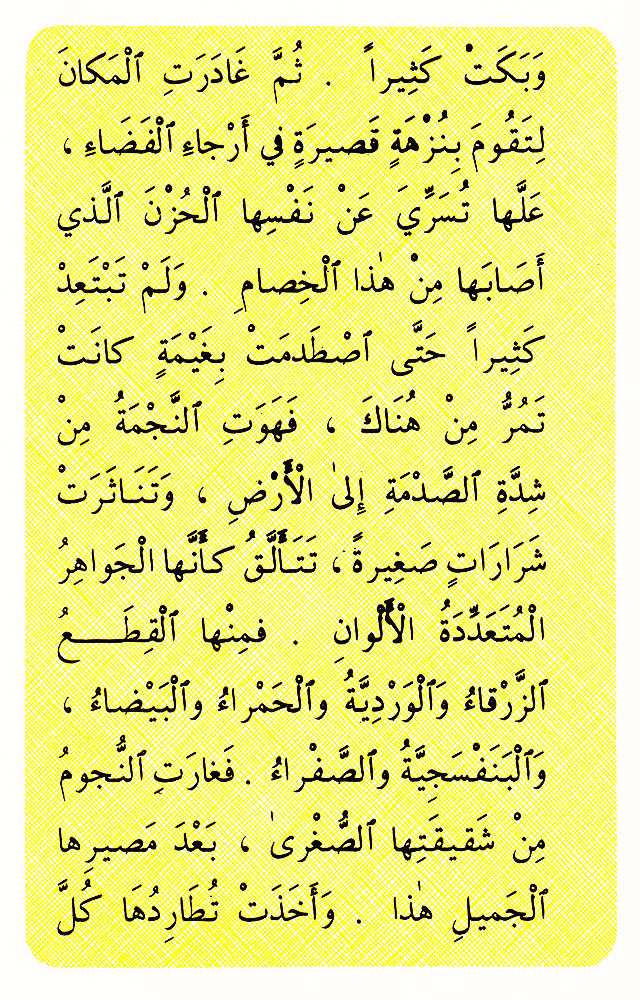 وَبَكَتْ كَثِيراً . ثُمَّ غَادَرَتِ ٱلْمَكانَ
لِتَقُومَ بِنُزْهَةٍ قَصيرَةٍ في أَرْجاءِ ٱلْفَضَاءِ ،
عَلَّها تُسَرِّيَ عَنْ نَفْسِها ٱلْحُزْنَ ٱلَّذي
أَصَابَها مِنْ هٰذا ٱلْخِصامِ . وَلَمْ تَبْتَعِدْ
كَثِيراً حَتَّى ٱصْطَدمَتْ بِغَيْمَةٍ كانَتْ
تَمُرُّ مِنْ هُنَاكَ ، فَهَوَتِ ٱلنَّجْمَةُ مِنْ
شِدَّةِ ٱلصَّدْمَةِ إِلىٰ الْأَرْضِ ، وَتَنَاثَرَتْ
شَرَارَاتٍ صَغِيرةً ، تَتَأَلَّقُ كأَنَّها الْجَواهِرُ
الْمُتَعَدِّدَةُ الْأَلْوانِ . فمِنْها ٱلْقِطَـــعُ
ٱلزَّرْقاءُ وَٱلْوَرْدِيَّةُ وٱلْحَمْراءُ وٱلْبَيْضاءُ ،
وَٱلْبَنَفْسَجِيَّةُ وٱلصَّفْراءُ . فَغارَتِ ٱلنُّجومُ
مِنْ شَقيقَتِها ٱلصُّغْرىٰ ، بَعْدَ مَصيرِها
ٱلْجَميلِ هٰذا . وَأَخَذَتْ تُطَارِدُهَا كُلَّ